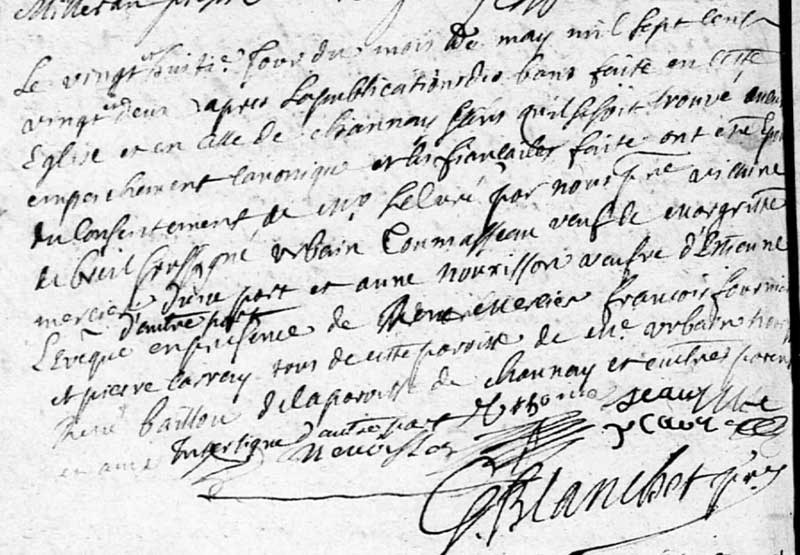 Le vingt huitie. Jour du mois de may mil sept cens
vingt deux apres la publications des bans faite en cette
Eglise et en celle de channay sans qu'il se soit trouvé aucun
empeschement canonique et les fiançailles faite ont eté
du Consentement de Mr. le Curé par nous pre vicaire
de breil soussigné urbain Commasseau veuf de Margritte
mercier d'une part et anne nourisson veufve d'Etienne
d'autre part
L'evêque en presence de René mercier françois fournier
et pierre carray tous de cette paroisse de Me. urbain
René baillou de la paroisse de channay et autres parent
et amis Interligne d'autre part
Blanchet pre